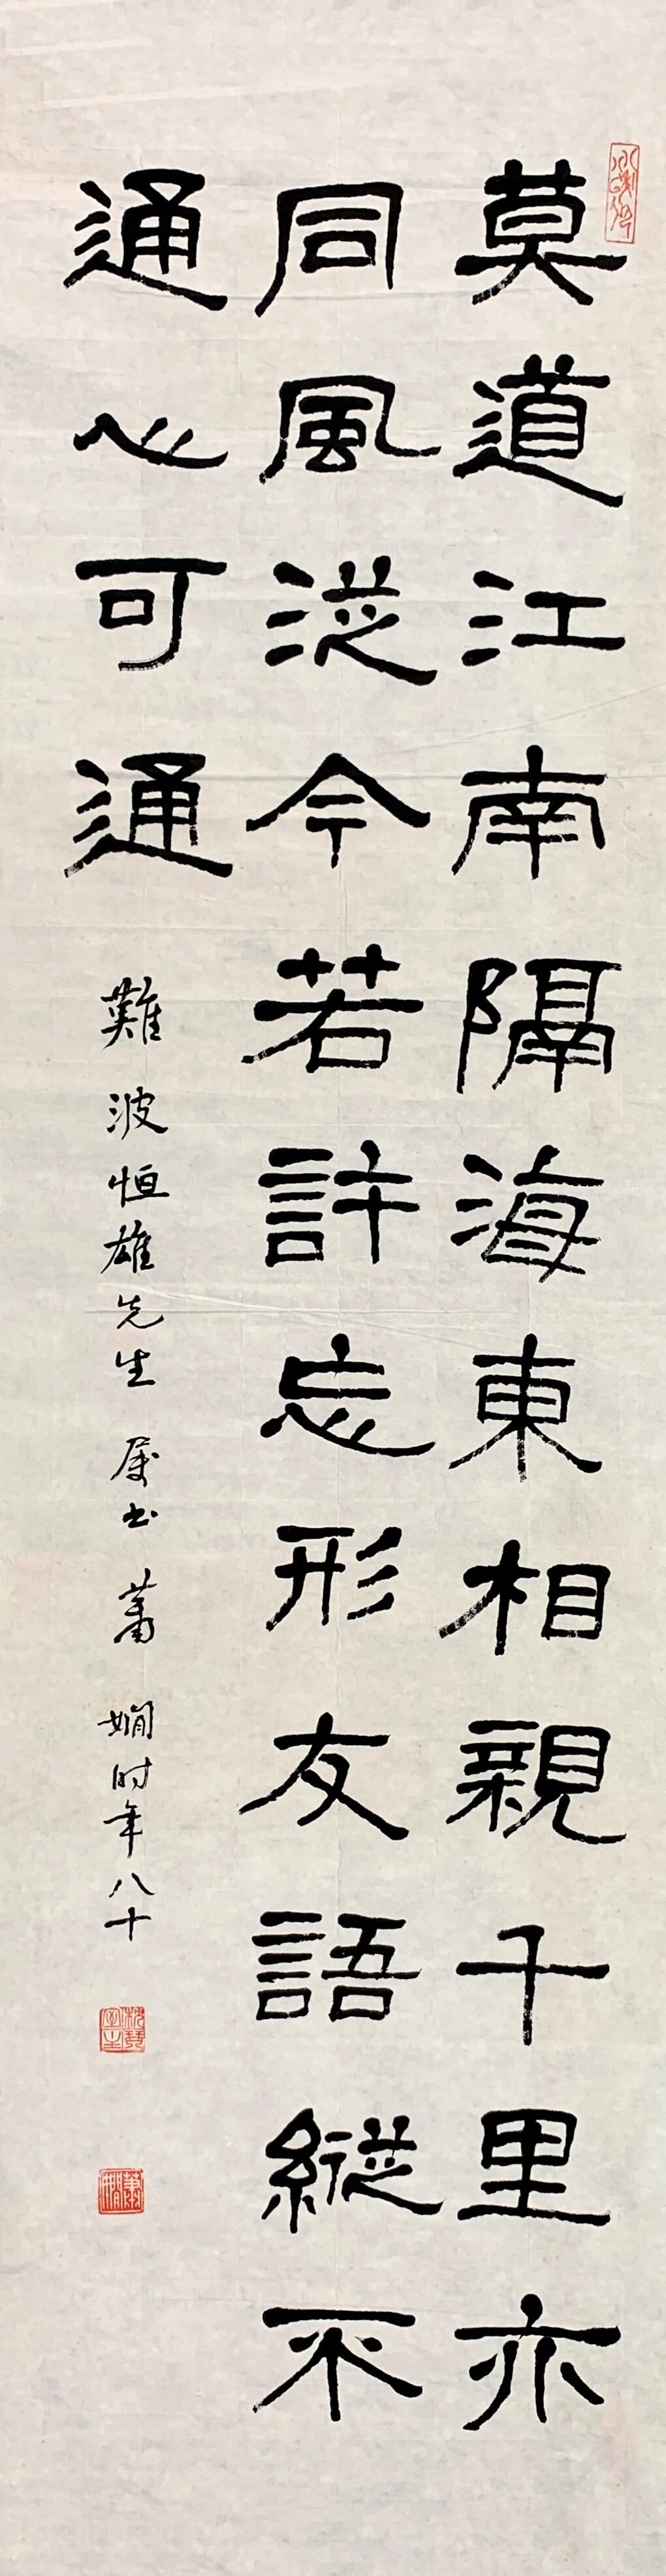 莫道江南隔海東相親千里亦
同風從今若許忘形友語縱不
通心可通
難波恒雄先生 屬書 蕭嫻时年八十
蕭嫻